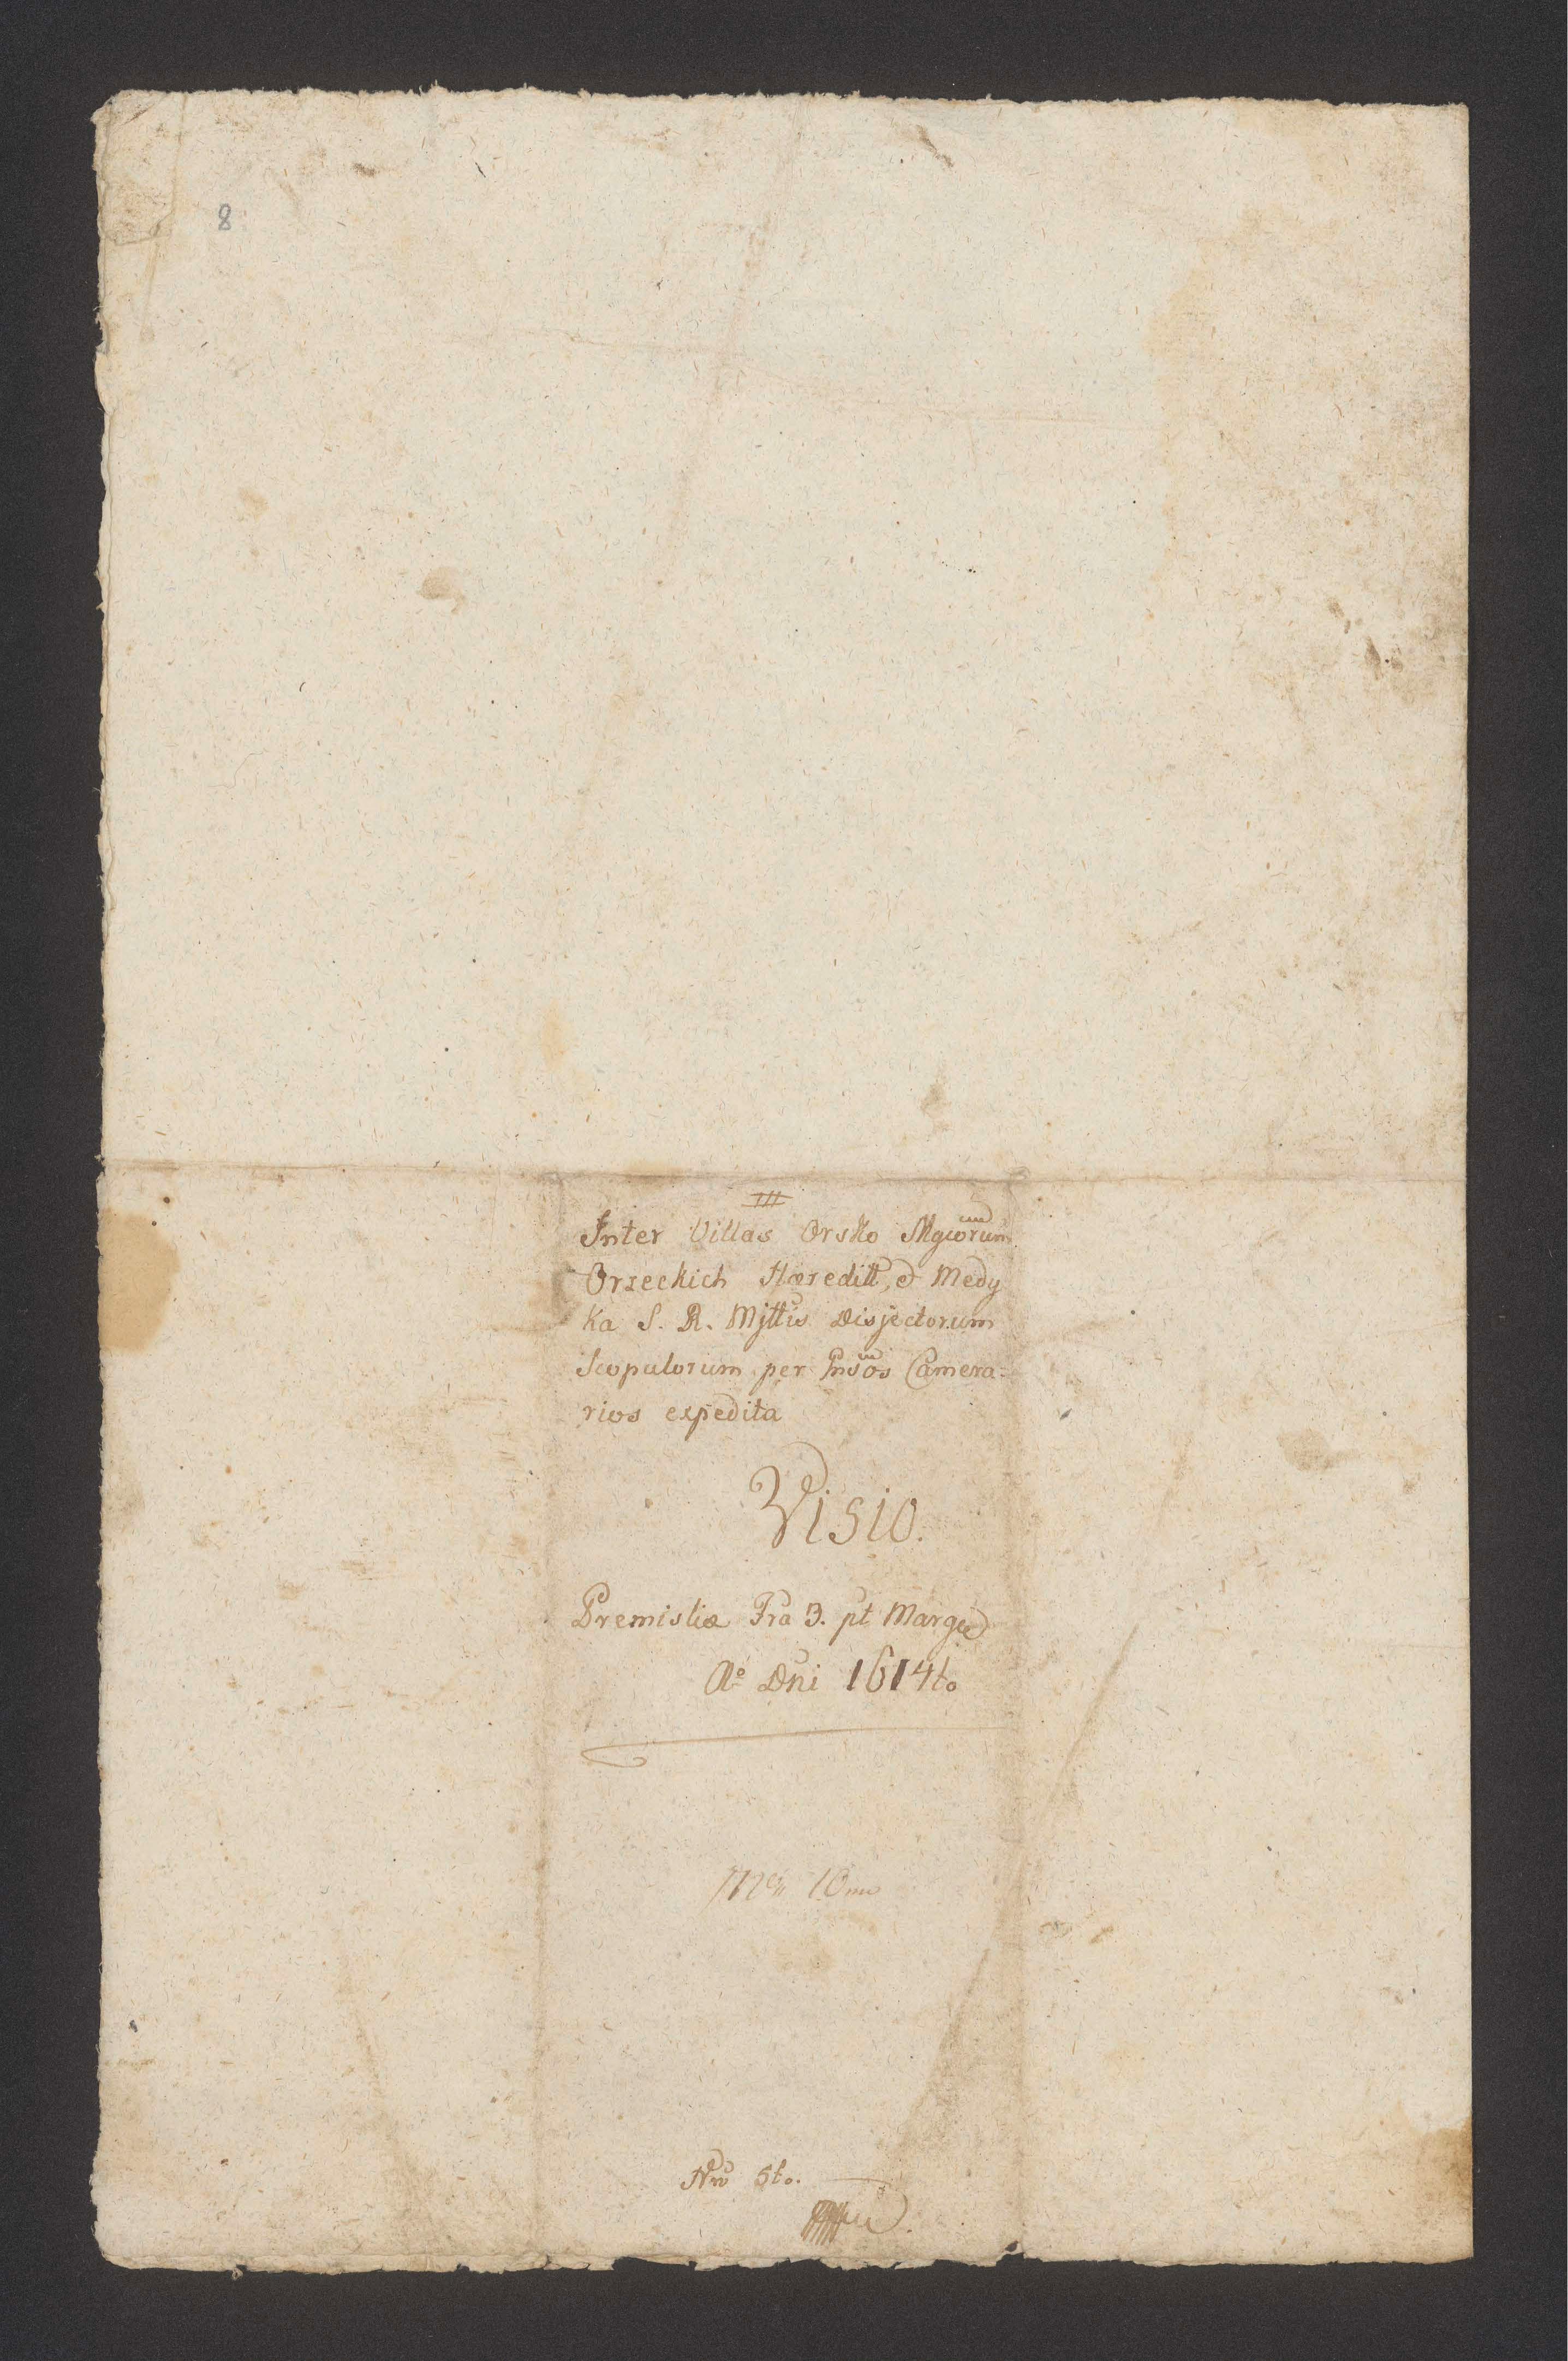 8
III
Inter Villas Orsko Mgcorum
Orzeckich Hæreditt, et Medy
ka S. R. Mjttis Disjectorum
Scopulorum per Gnsos Camera-
rios expedita
Visio.
Premisliæ Fra 3. pt Marge
Ao Dni 1614to
10mo
Nro 5to.